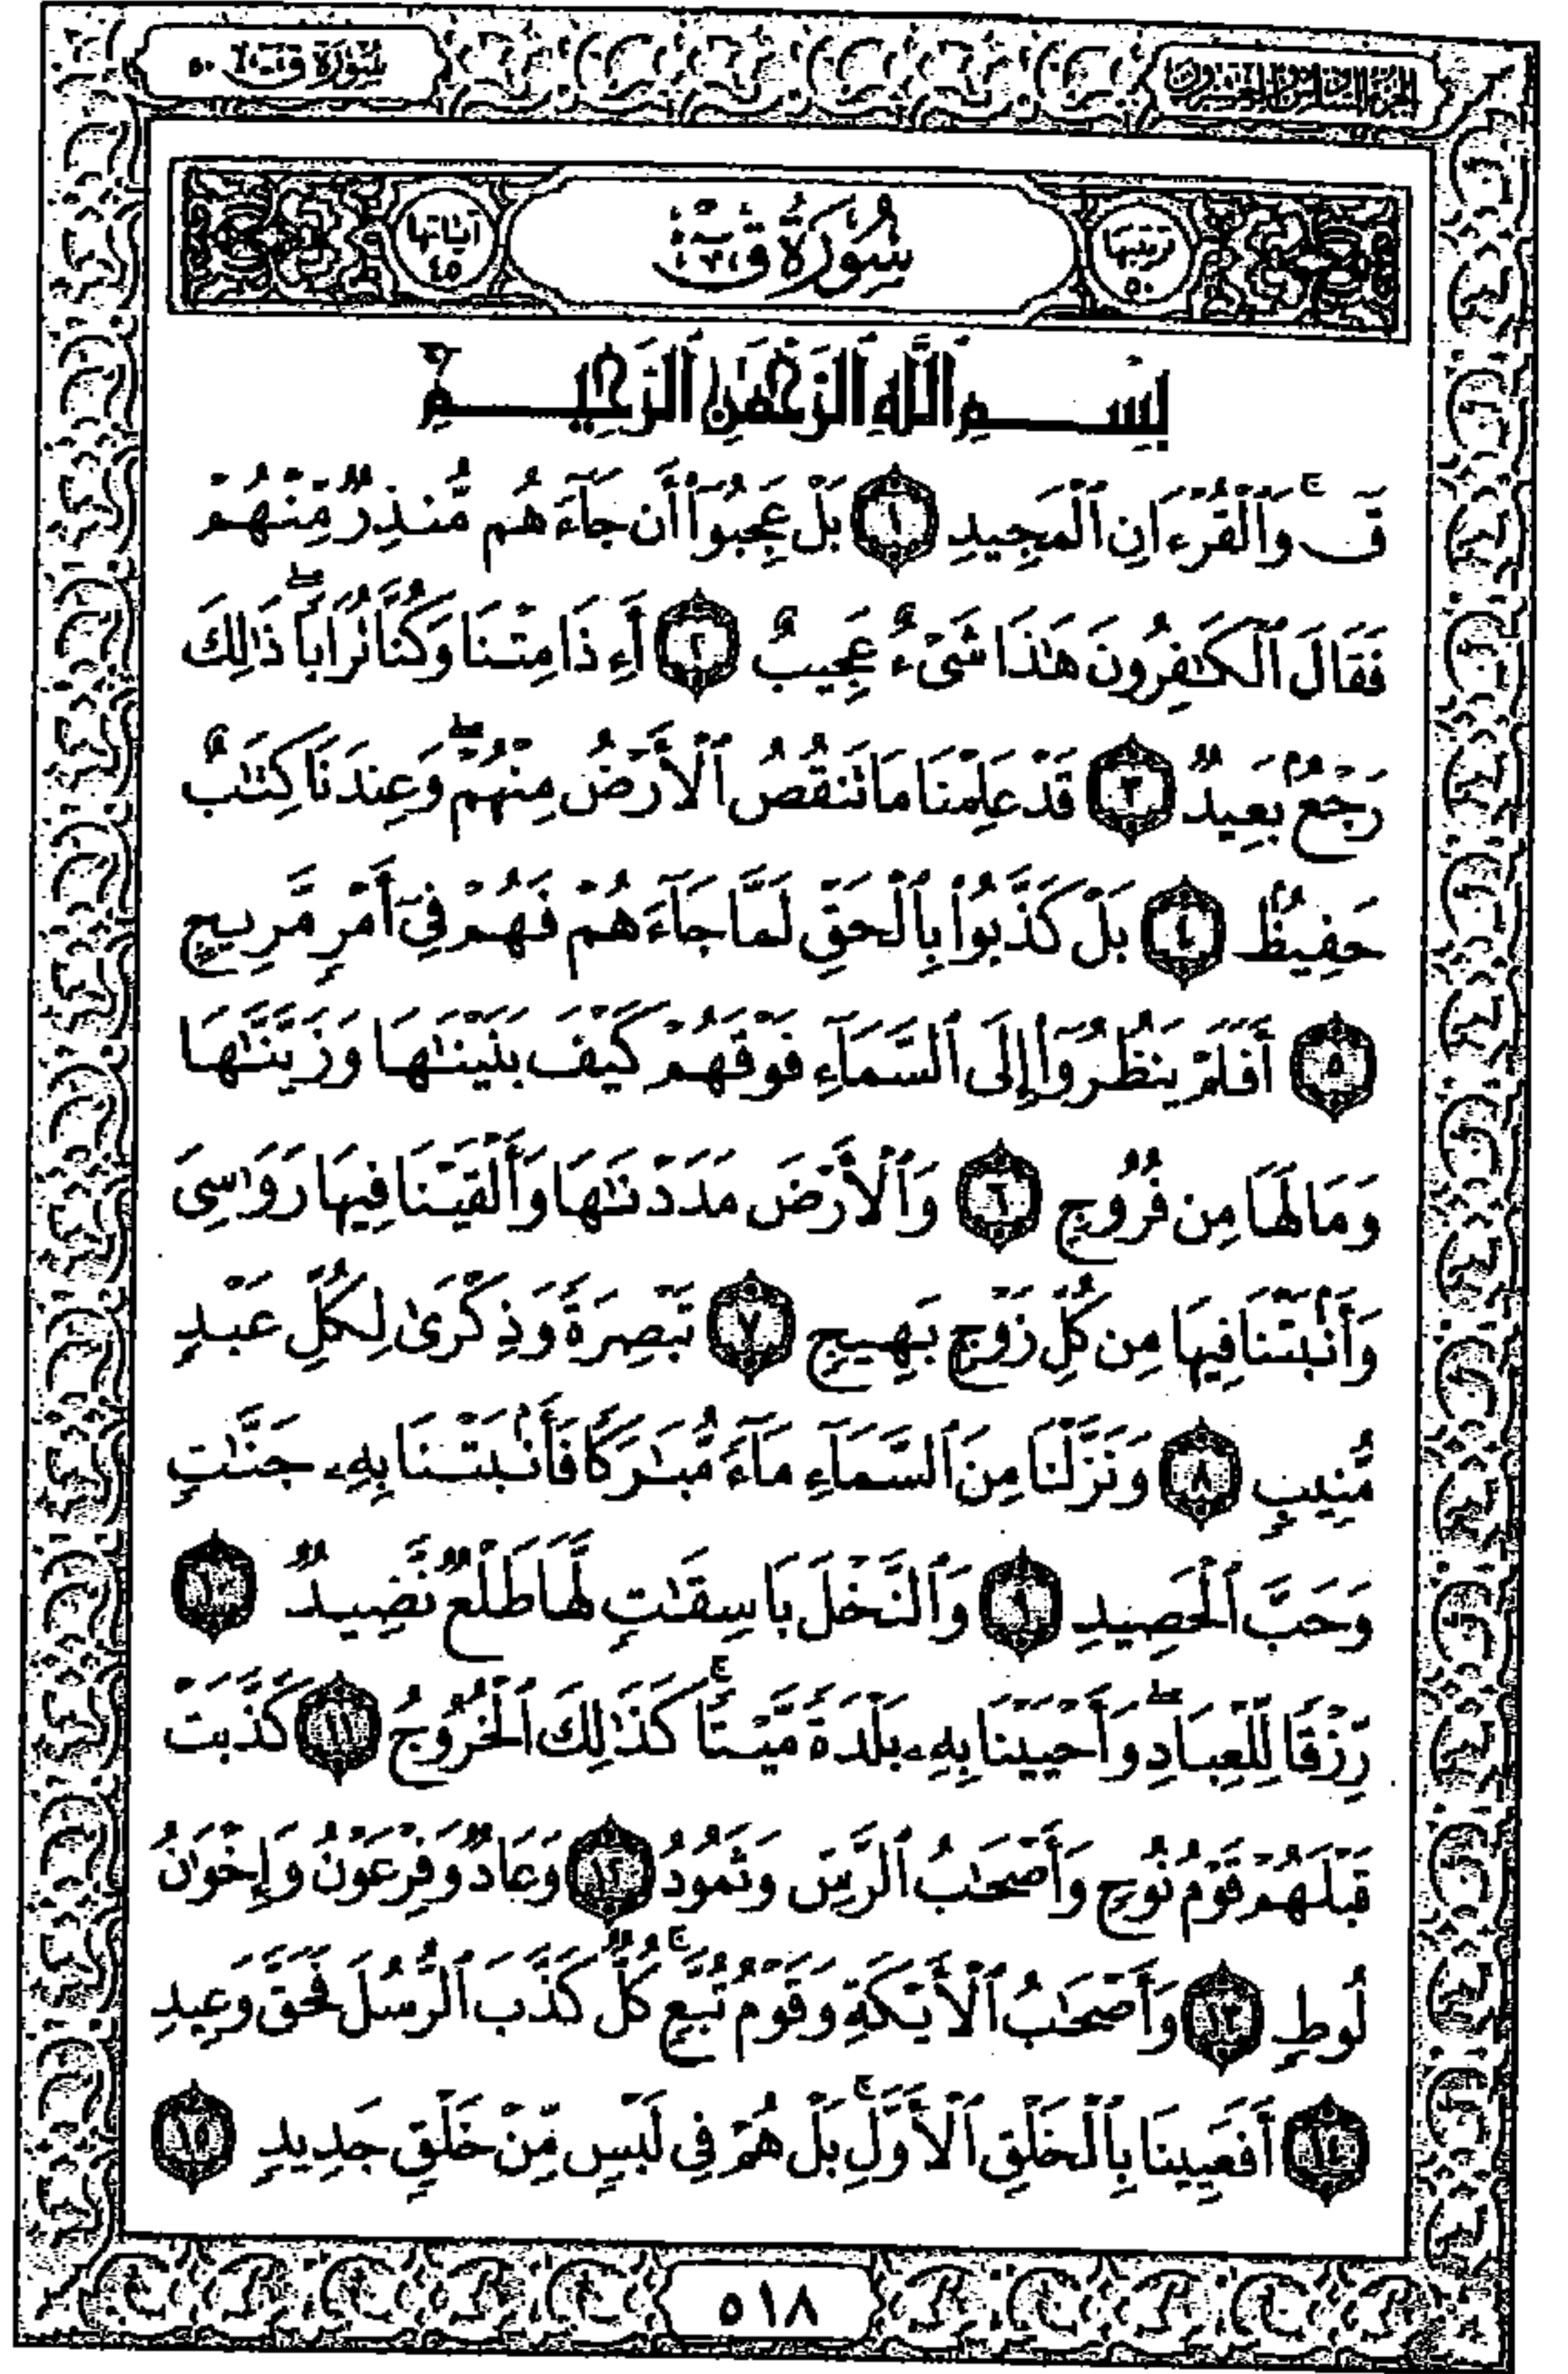 الجزء السادس والعشرون
سُورَةُ قٓ ٥٠
ترتيبها ٥٠
سُورَةُ قٓ
آياتها ٤٥
بِسْمِ ٱللَّهِ ٱلرَّحْمَٰنِ ٱلرَّحِيمِ
قٓ ۚ وَٱلْقُرْءَانِ ٱلْمَجِيدِ ١ بَلْ عَجِبُوٓا۟ أَن جَآءَهُم مُّنذِرٌ مِّنْهُمْ
فَقَالَ ٱلْكَٰفِرُونَ هَٰذَا شَىْءٌ عَجِيبٌ ٢ أَءِذَا مِتْنَا وَكُنَّا تُرَابًا ۖ ذَٰلِكَ
رَجْعٌۢ بَعِيدٌ ٣ قَدْ عَلِمْنَا مَا تَنقُصُ ٱلْأَرْضُ مِنْهُمْ ۖ وَعِندَنَا كِتَٰبٌ
حَفِيظٌۢ ٤ بَلْ كَذَّبُوا۟ بِٱلْحَقِّ لَمَّا جَآءَهُمْ فَهُمْ فِىٓ أَمْرٍ مَّرِيجٍ
٥ أَفَلَمْ يَنظُرُوٓا۟ إِلَى ٱلسَّمَآءِ فَوْقَهُمْ كَيْفَ بَنَيْنَٰهَا وَزَيَّنَّٰهَا
وَمَا لَهَا مِن فُرُوجٍ ٦ وَٱلْأَرْضَ مَدَدْنَٰهَا وَأَلْقَيْنَا فِيهَا رَوَٰسِىَ
وَأَنۢبَتْنَا فِيهَا مِن كُلِّ زَوْجٍۭ بَهِيجٍ ٧ تَبْصِرَةً وَذِكْرَىٰ لِكُلِّ عَبْدٍ
مُّنِيبٍ ٨ وَنَزَّلْنَا مِنَ ٱلسَّمَآءِ مَآءً مُّبَٰرَكًا فَأَنۢبَتْنَا بِهِۦ جَنَّٰتٍ
وَحَبَّ ٱلْحَصِيدِ ٩ وَٱلنَّخْلَ بَاسِقَٰتٍ لَّهَا طَلْعٌ نَّضِيدٌ ١٠
رِّزْقًا لِّلْعِبَادِ ۖ وَأَحْيَيْنَا بِهِۦ بَلْدَةً مَّيْتًا ۚ كَذَٰلِكَ ٱلْخُرُوجُ ١١ كَذَّبَتْ
قَبْلَهُمْ قَوْمُ نُوحٍ وَأَصْحَٰبُ ٱلرَّسِّ وَثَمُودُ ١٢ وَعَادٌ وَفِرْعَوْنُ وَإِخْوَٰنُ
لُوطٍ ١٣ وَأَصْحَٰبُ ٱلْأَيْكَةِ وَقَوْمُ تُبَّعٍ ۚ كُلٌّ كَذَّبَ ٱلرُّسُلَ فَحَقَّ وَعِيدِ
١٤ أَفَعَيِينَا بِٱلْخَلْقِ ٱلْأَوَّلِ ۚ بَلْ هُمْ فِى لَبْسٍ مِّنْ خَلْقٍ جَدِيدٍ ١٥
٥١٨